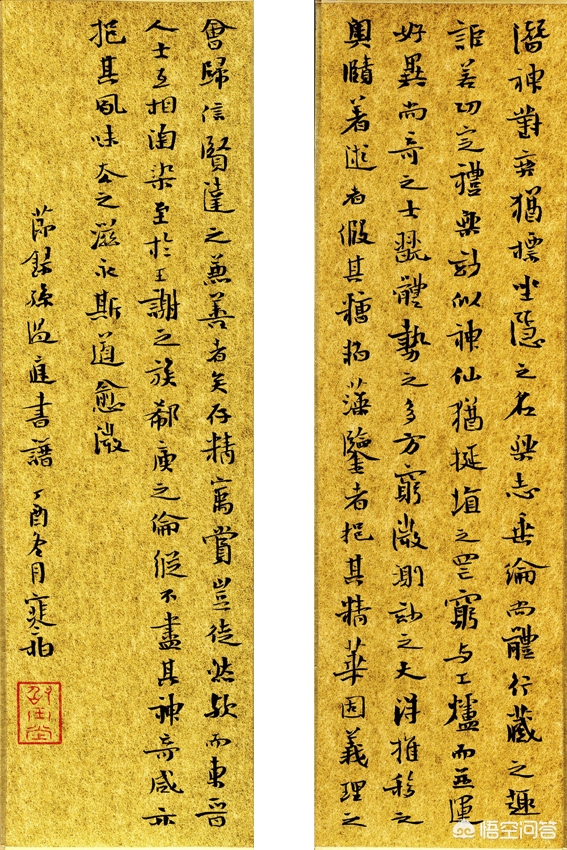 潛神對弈猶標坐隱之名樂志垂綸尚體行藏之趣
詎若功定禮樂妙似神仙猶挻埴之罔窮與工爐而並運
好異尚奇之士翫體勢之多方窮微測妙之夫得推移之
奧賾著述者假其糟粕藻鑒者挹其精華固義理之
會歸信賢達之兼善者矣存精寓賞豈徒然歟而東晉
人士互相陶染至於王謝之族郗庾之倫縱不盡其神奇咸亦
挹其風味去之滋永斯道愈微
節錄孫過庭書譜 丁酉冬月
悟空问答